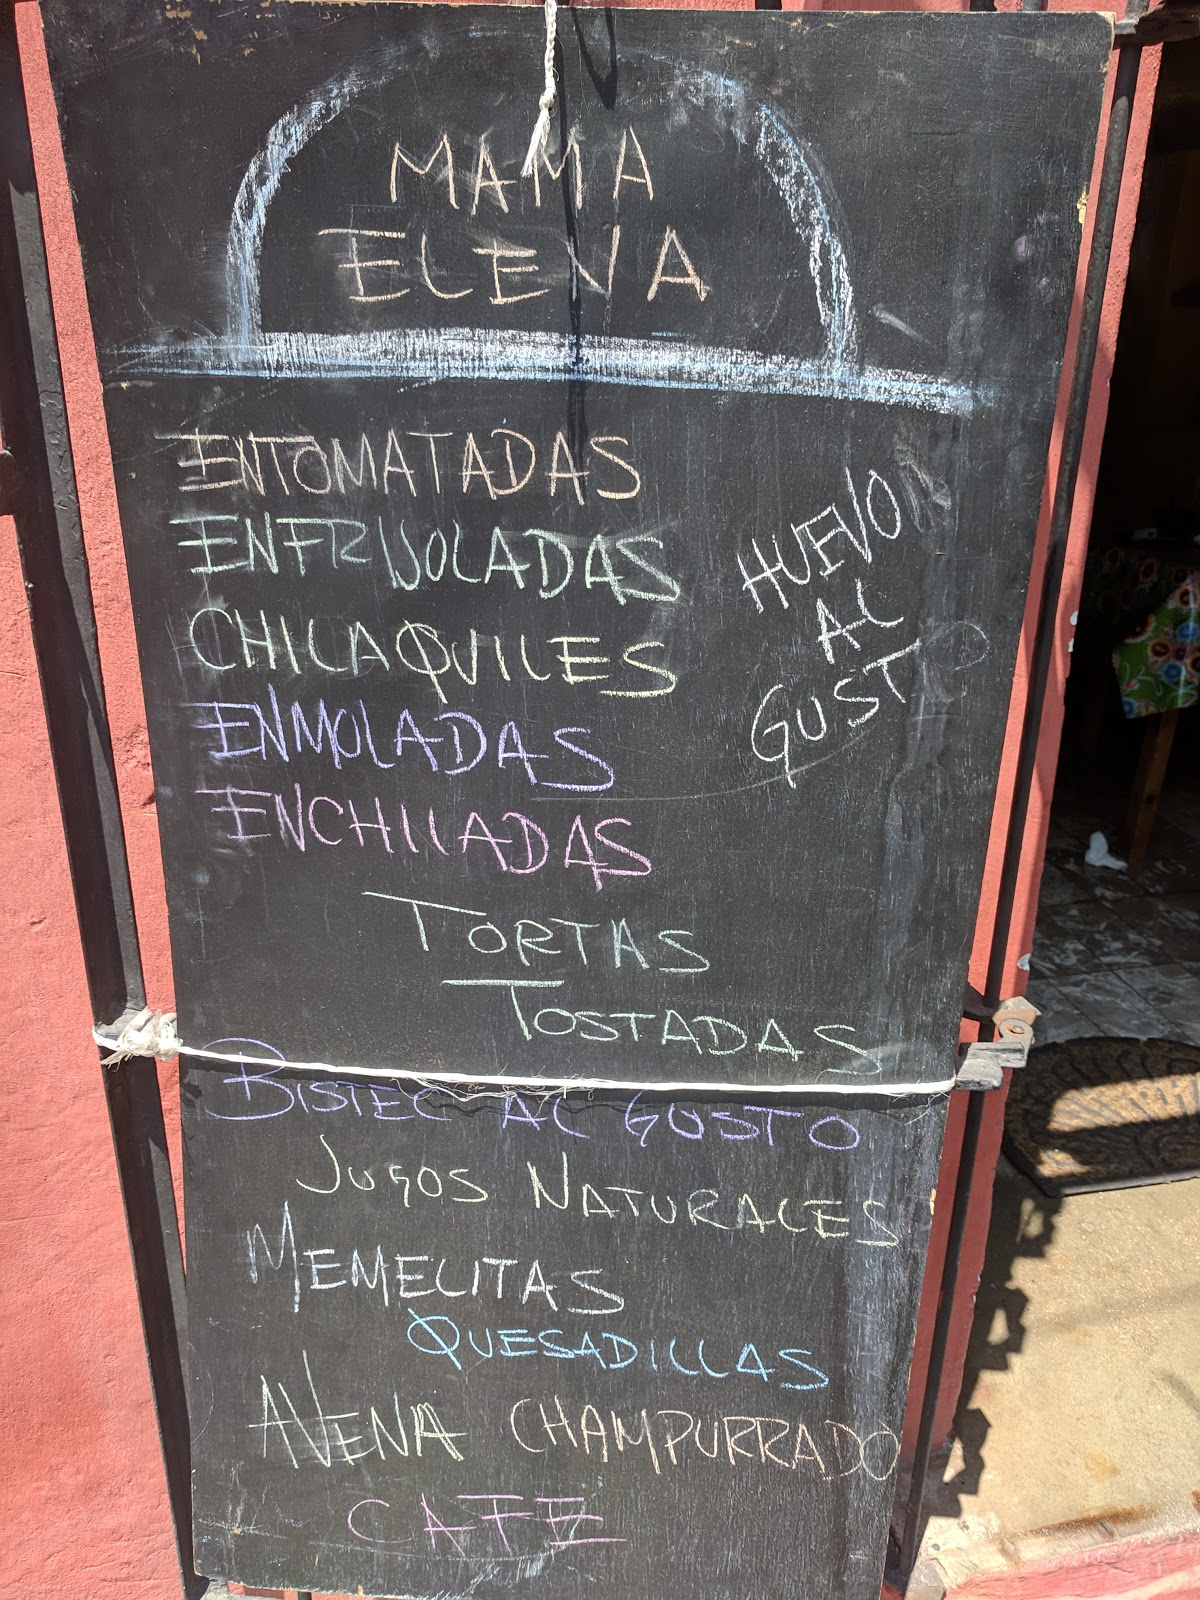 MAMA
ELENA
ENTOMATADAS
ENFRIJOLADAS
CHILAQUILES
ENMOLADAS
ENCHILADAS
HUEVO
AL
GUSTO
TORTAS
TOSTADAS
BISTEC AL GUSTO
JUGOS NATURALES
MEMELITAS
QUESADILLAS
AVENA CHAMPURRADO
CAFE